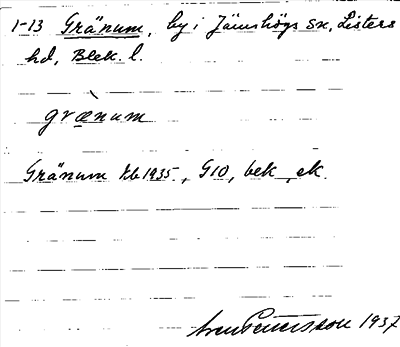 1-13 Gränum, by i Jämshögs sn, Listers
hd, Blek. l.
grænum
Gränum kb 1935, G10, bek, ek.
Sven Pettersson 1937